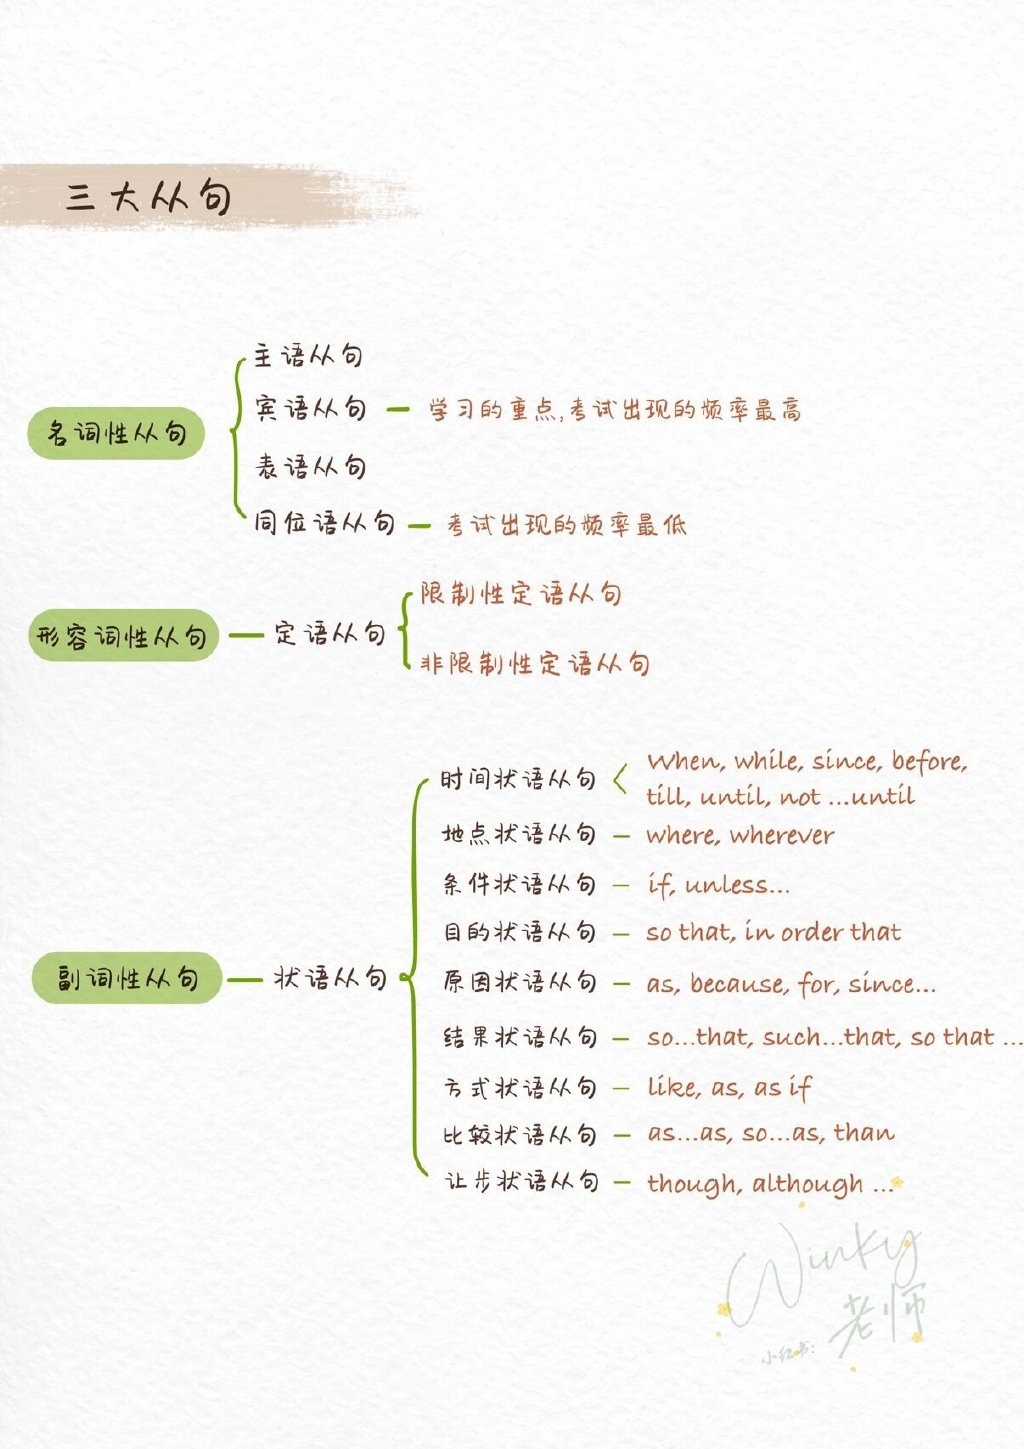 三大从句
名词性从句
主语从句
宾语从句 — 学习的重点,考试出现的频率最高
表语从句
同位语从句 — 考试出现的频率最低
形容词性从句 — 定语从句
限制性定语从句
非限制性定语从句
副词性从句 — 状语从句
时间状语从句
When, while, since, before,
till, until, not ...until
地点状语从句 — where, wherever
条件状语从句 — if, unless...
目的状语从句 — so that, in order that
原因状语从句 — as, because, for, since...
结果状语从句 — so...that, such...that, so that ...
方式状语从句 — like, as, as if
比较状语从句 — as...as, so...as, than
让步状语从句 — though, although ...
Winky
小红书: 老师